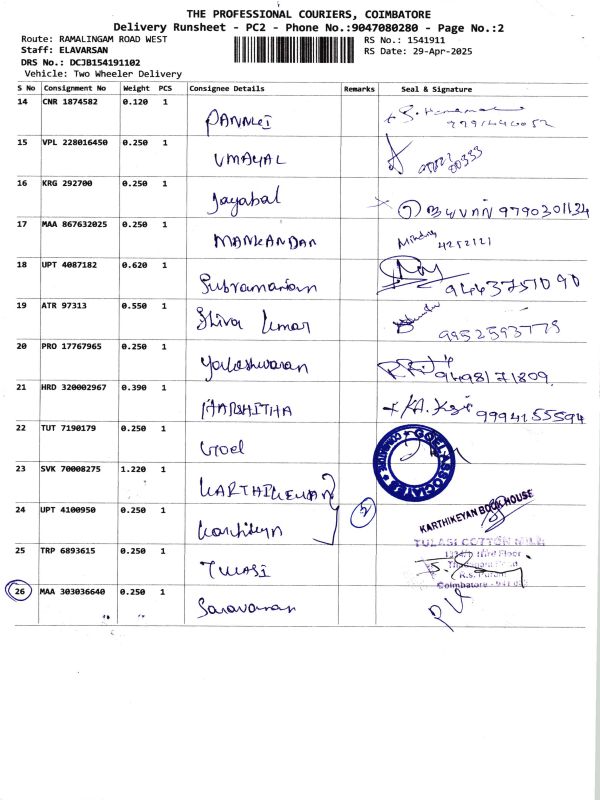 THE PROFESSIONAL COURIERS, COIMBATORE
Delivery Runsheet - PC2 - Phone No.:9047080280 - Page No.:2
Route: RAMALINGAM ROAD WEST
Staff: ELAVARSAN
DRS No.: DCJB154191102
Vehicle: Two Wheeler Delivery
RS No.: 1541911
RS Date: 29-Apr-2025
S No Consignment No Weight PCS Consignee Details Remarks Seal & Signature
14 CNR 1874582 0.120 1
15 VPL 228016450 0.250 1 UMAYAL
16 KRG 292700 0.250 1 Jayabal 9790301134
17 MAA 867632025 0.250 1 MANKANDAN 4252121
18 UPT 4087182 0.620 1 Subramaniam 9443751090
19 ATR 97313 0.550 1 Shiva kumar 9952593775
20 PRO 17767965 0.250 1 Yokeshwaran 9498171809
21 HRD 320002967 0.390 1 HARSHITHA 9994155594
22 TUT 7190179 0.250 1 Goel GOEL ASSOCIATES COIMBATORE
23 SVK 70008275 1.220 1 KARTHIKEYAN
24 UPT 4100950 0.250 1 Karthikeyn 2 KARTHIKEYAN BOOK HOUSE
25 TRP 6893615 0.250 1 TULASI TULASI COTTON
Floor
R.S. Puram
Coimbatore
26 MAA 303036640 0.250 1 Saravanan